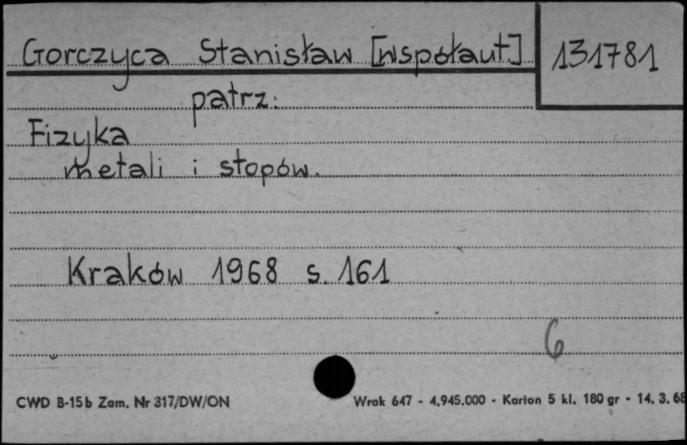 Gorczyca Stanisław [współaut] 131781
patrz:
Fizyka
metali i stopów.
Kraków 1968 s. 161
6
CWD B-15b Zam. Nr 317/DW/ON Wrak 647 - 4.945.000 - Karton 5 kl. 180 gr - 14. 3. 68